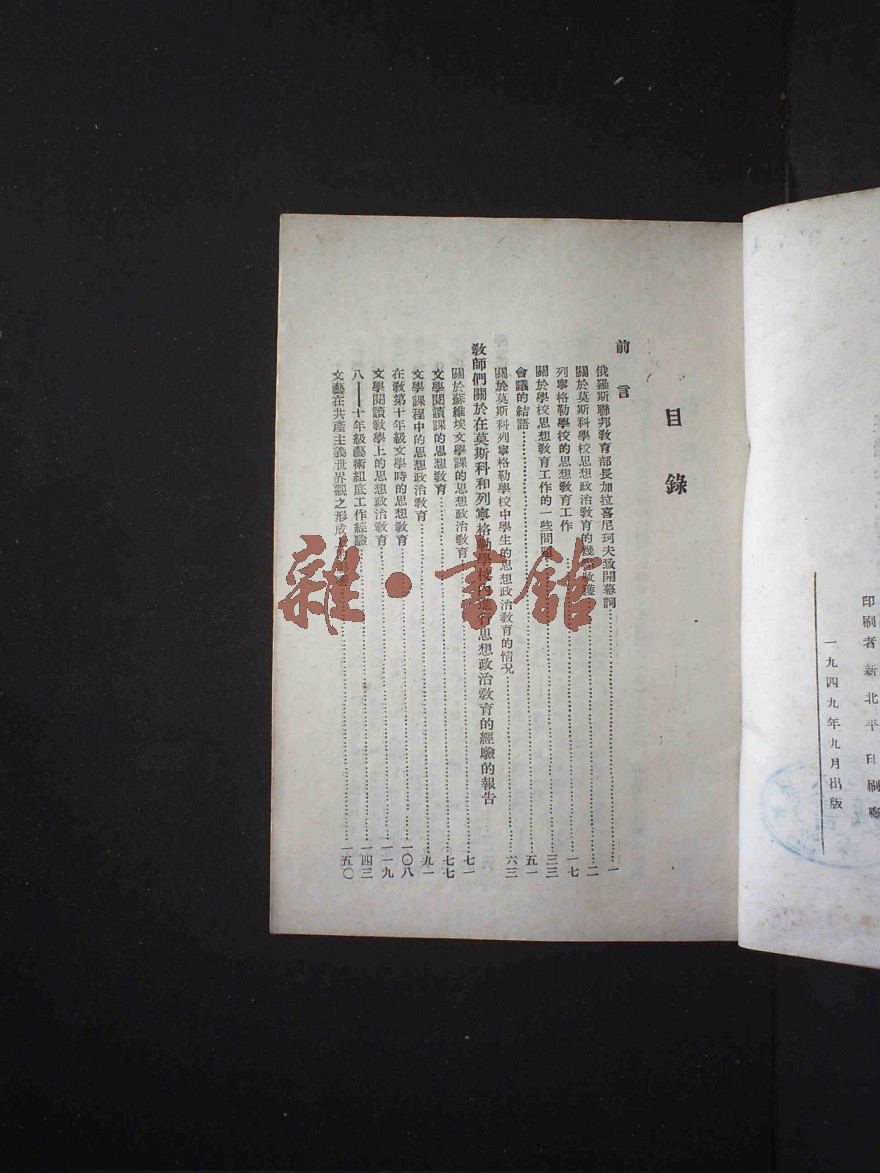 印刷者 新北平印刷
一九四九年九月出版
目錄
前言
俄羅斯聯邦教育部長加拉喜尼珂夫致開幕詞……一
關於莫斯科學校思想政治教育的幾點收穫……二
列寧格勒學校的思想教育工作……一七
關於學校思想教育工作的一些問題……三三
會議的結語……五一
關於莫斯科列寧格勒學校中學生的思想政治教育的情况……六三
教師們關於在莫斯科和列寧格勒學校內進行思想政治教育的經驗的報告
關於蘇維埃文學課的思想政治教育……七一
文學閱讀課的思想教育……七七
文學課程中的思想政治教育……九一
在教第十年級文學時的思想教育……一〇八
文學閱讀教學上的思想政治教育……一一九
八——十年級藝術組底工作經驗……一四三
文藝在共產主義世界觀之形成上的……一五〇
雜·書館